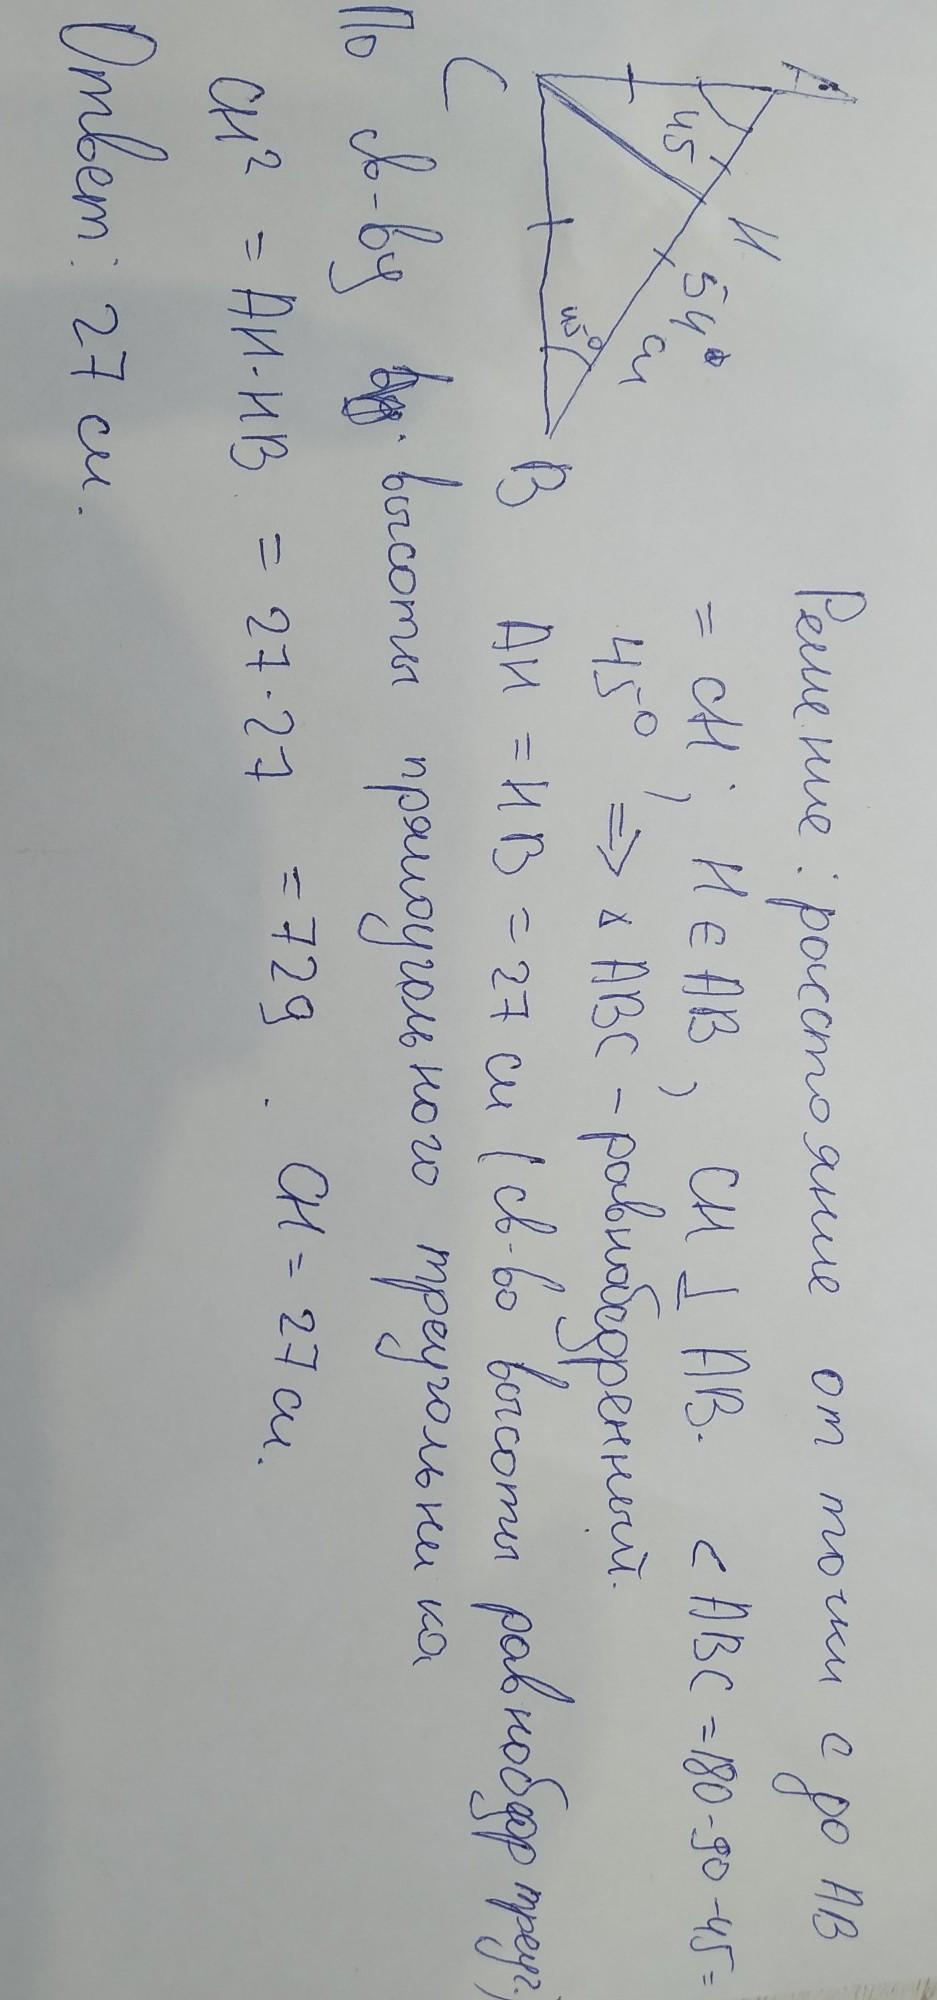 Решение: росстояние от точки с до AB
= CH; H ∈ AB, CH ⊥ AB. < ABC = 180-90-45 =
45°, => ▵ ABC - равнобедренный.
AH = HB = 27 см (св-во высоты равнобедр треуг.)
По св-ву высоты прямоугольного треугольника
CH² = AH·HB = 27·27 = 729. CH = 27 см.
Ответ: 27 см.
A
H
54 см
45
45°
C
B